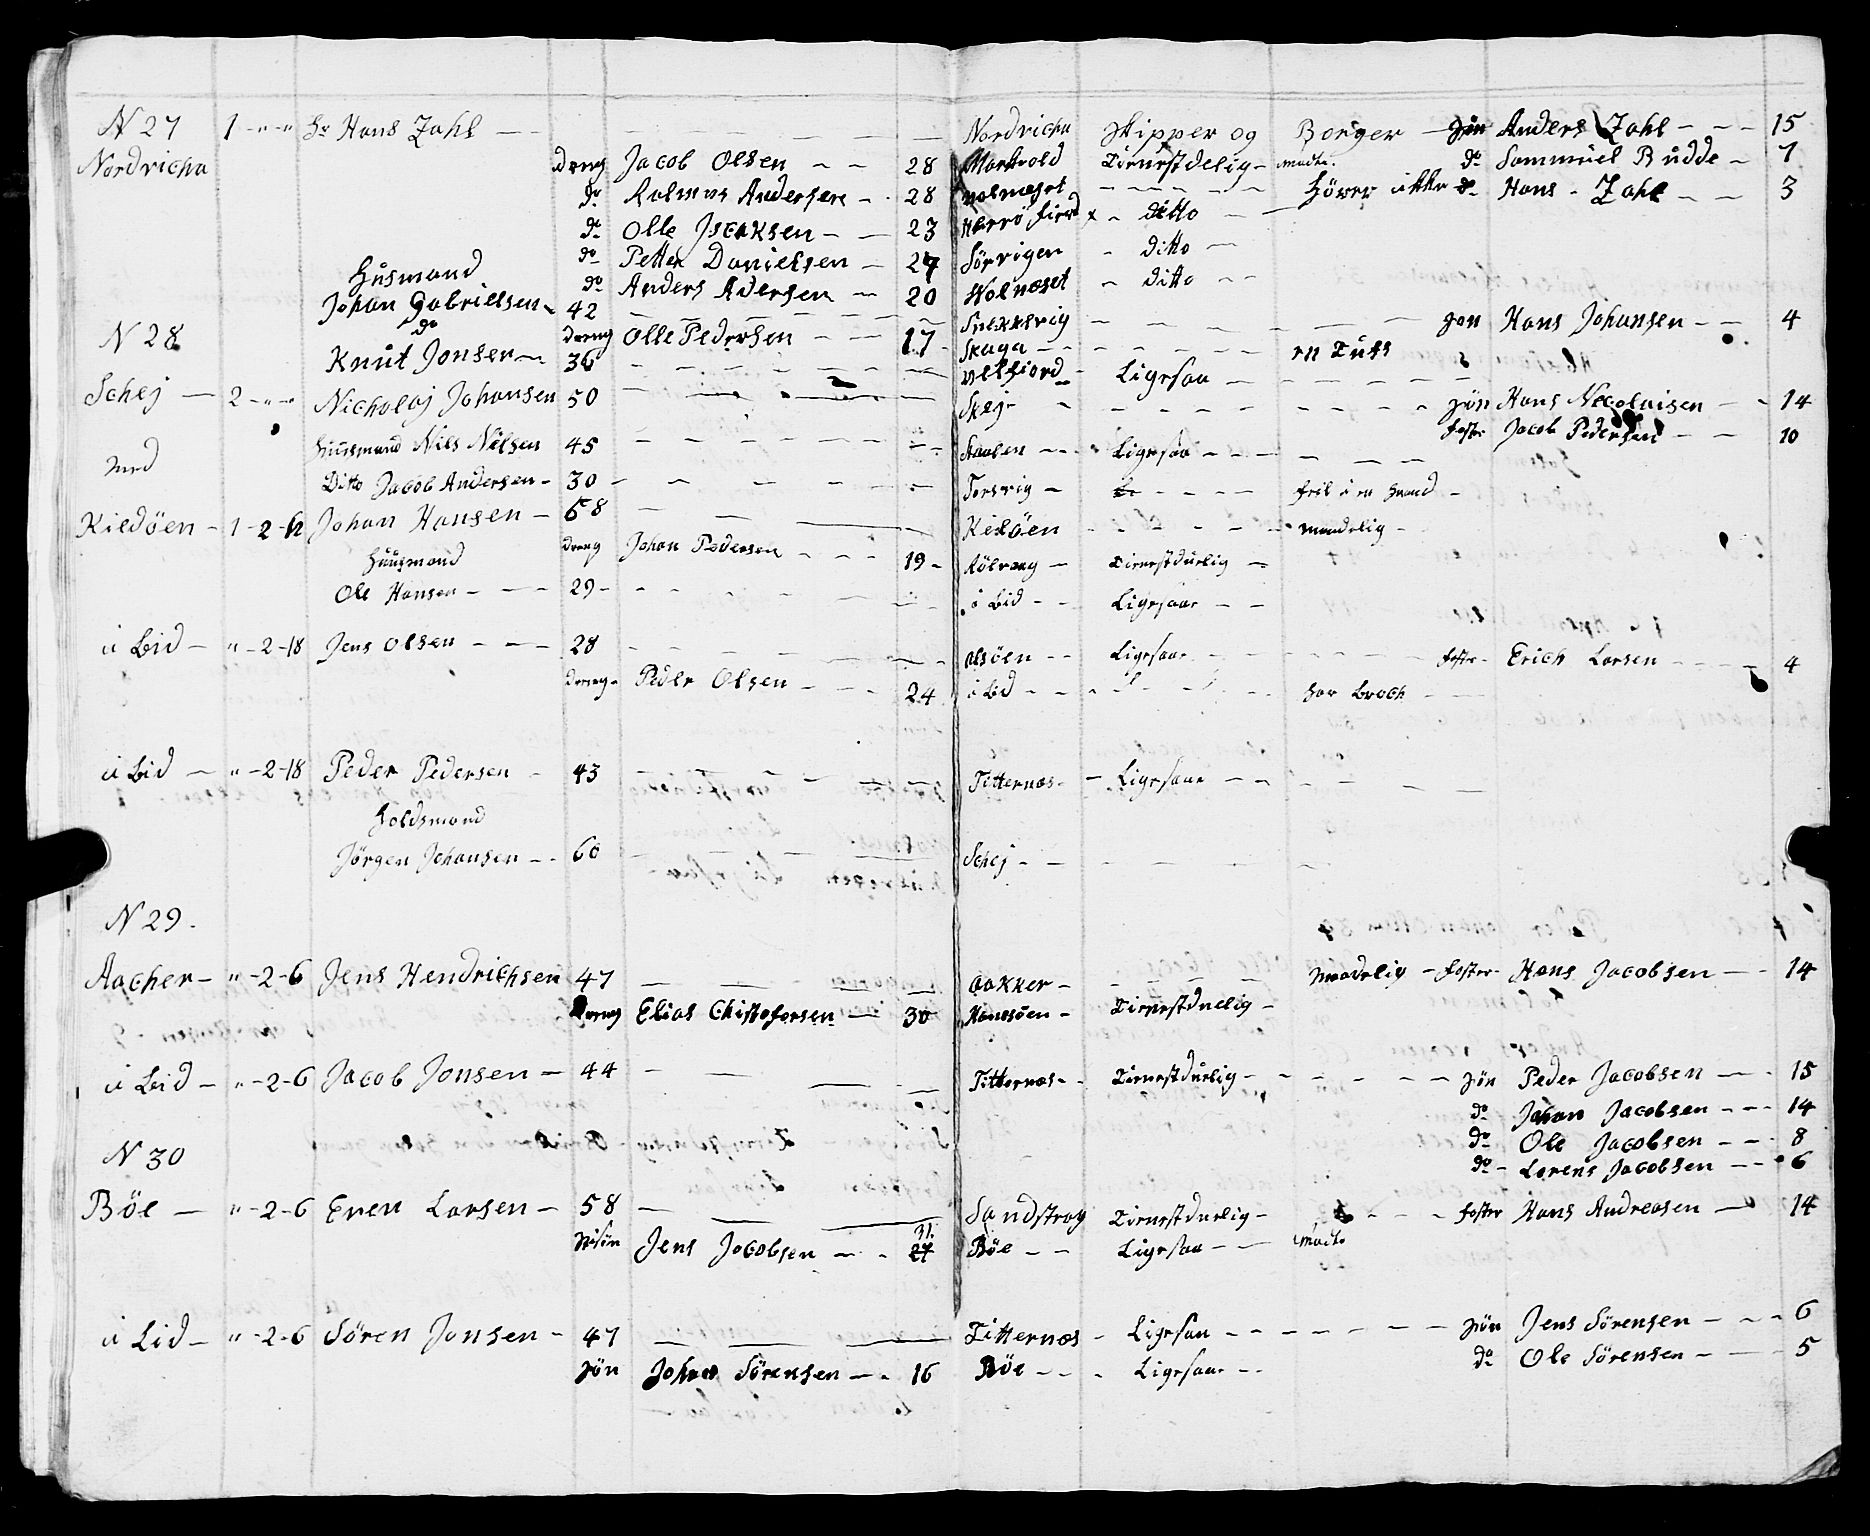 N 27 1 - " - " Hr Hans Zahl - - - - - - - Nordvicha Skipper og Borger - Søn Anders Zahl - - - 15
Nordvicha Dreng Jacob Olsen - - 28 Markvold Tienestdelig - Madte. do Sammuel Budde - 7
do Rasmus Andersen - 28 Wolnæset - - - - - Hörer ikke do Hans - Zahl - - 3
do Olle Isaksen - - 23 Værrøfiord x - ditto -
do Petter Danielsen - 24 Sörvigen - ditto -
Husmand do Anders Adersen - 20 Wolnæset - ditto - -
Johan Gabrielsen - 42 - - - - - - Snekkevig - - - - - - Søn Hans Johansen - - 4
N 28 do Dreng Olle Pedersen - - 17 - Skaga - - - - - - en Tuts
Knut Jonsen - 36 - - - - - - Velfiord - Ligesaa - - - - - -
Schej - 2 - " - " Nicholaj Johansen 50 - - - - - Skej - - - - - - - - - Søn Hans Necolaisen - - 14
Foster Jacob Pedersen - - 10
med Huusmand Nils Nilsen 45 - - - - - - Ligesaa - - - - - -
Ditto Jacob Andersen - 30 - - - - - - Torsvig - - - - - feil i en Haand -
Kieldöen - 1 - 2 - 12 Johan Hansen - 68 - - - - Kieldöen - - - - - maadelig -
Huusmand Dreng Johan Pedersen - - - 19 - Rölvaag - Tienestduelig -
Ole Hansen - - - 29 - - - - - - - i Lid - - Ligesaa - -
i Lid - " - 2 - 18 Jens Olsen - - - 28 - - - - - - Alsöen - - Ligesaa - - - - - Foster - Erich Larsen - - - - 4
Dreng - Peder Olsen - - - 24 i Lid - - - - - - har Broch - -
i Lid - " - 2 - 18 Peder Pedersen - 43 - - - - - Titternæs - - Ligesaa - - - - - -
Holdsmand
Jörgen Johansen - - 60 - - - - Schej - - - - - -
N 29.
Aacher - " - 2 - 6 Jens Hendrichsen 47 - - - - - Aakker - - - - - Maadelig - Foster - Hans Jacobsen - - 14
Dreng Elias Chistofersen - 30 Hanesöen - Tienestduelig -
i Lid - " - 2 - 6 Jacob Jonsen - 44 - - - - Titternæs - - Tienestduelig - - - - - Søn Peder Jacobsen - - 15
do Johan Jacobsen - - - 14
N 30 do Ole Jacobsen - - - 8
do - Lorens Jacobsen - - 6
Böe - " - 2 - 6 Even Larsen - 58 - - - Sandstrag Tienestduelig - - - - Foster Hans Andreasen - 14
Jens Jacobsen - - 27 Böe - - Ligesaa - - Madte
i Lid - " - 2 - 6 Sören Jonsen - 47 - - - Titternæs - Ligesaa - - - - - Søn Jens Sörensen - - - 6
Søn Johan Sörensen - - 16 Böe - - - Ligesaa - - do Ole Sörensen - - - 5